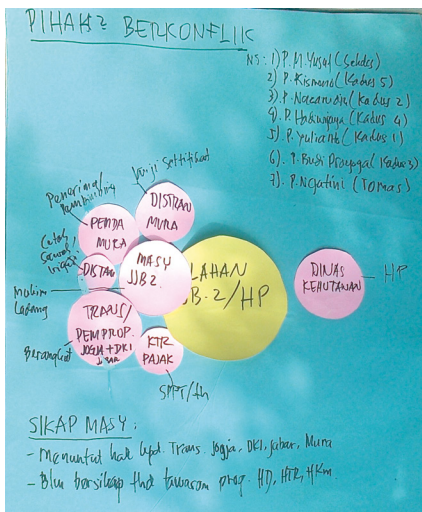 PIHAK² BERKONFLIK
NS : 1) P. M. Yusuf (Sekdes)
2) P. Kismono (Kadus 5)
3) P. Nasarudin (Kadus 2)
4) P. Hadiwijaya (Kadus 4)
5) P. Yulianto (Kadus 1)
6) P. Budi Prayoga (Kadus 3)
7) P. Ngatini (Tomas)
Janji Sertifikat
Penerima/
DISTRAN
MURA
PEMDA
MURA
Cetak
Sawah
Irigasi
DISTAN
MASY
JJB 2.
LAHAN
B.2/HP
DINAS
KEHUTANAN
HP
Mukim
Ladang
TRANS/
PEMPROP.
JOGJA+DKI
JABAR
Berangkat
KTR
PAJAK
SPPT/th
SIKAP MASY :
- Menuntut hak kpd. Trans. Jogja, DKI, Jabar, Mura
- Blm bersikap thd tawaran prog. HD, HTR, HKm.